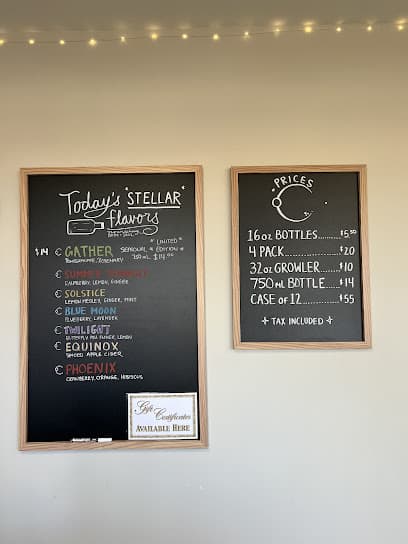 Today's "STELLAR"
flavors
* LIMITED *
$14 GATHER SEASONAL * EDITION *
ROSEMARY 750 mL $14.00
SUMMER
RASPBERRY, LEMON, GINGER
SOLSTICE
LEMON MEDLEY, GINGER, MINT
BLUE MOON
BLUEBERRY, LAVENDER
TWILIGHT
BUTTERFLY PEA FLOWER, LEMON
EQUINOX
SPICED APPLE CIDER
PHOENIX
CRANBERRY, ORANGE, HIBISCUS
Gift
Certificates
AVAILABLE HERE
PRICES
16 oz BOTTLES.........$5.50
4 PACK..................$20
32 oz GROWLER...$10
750 mL BOTTLE....$14
CASE OF 12............$55
+ TAX INCLUDED +